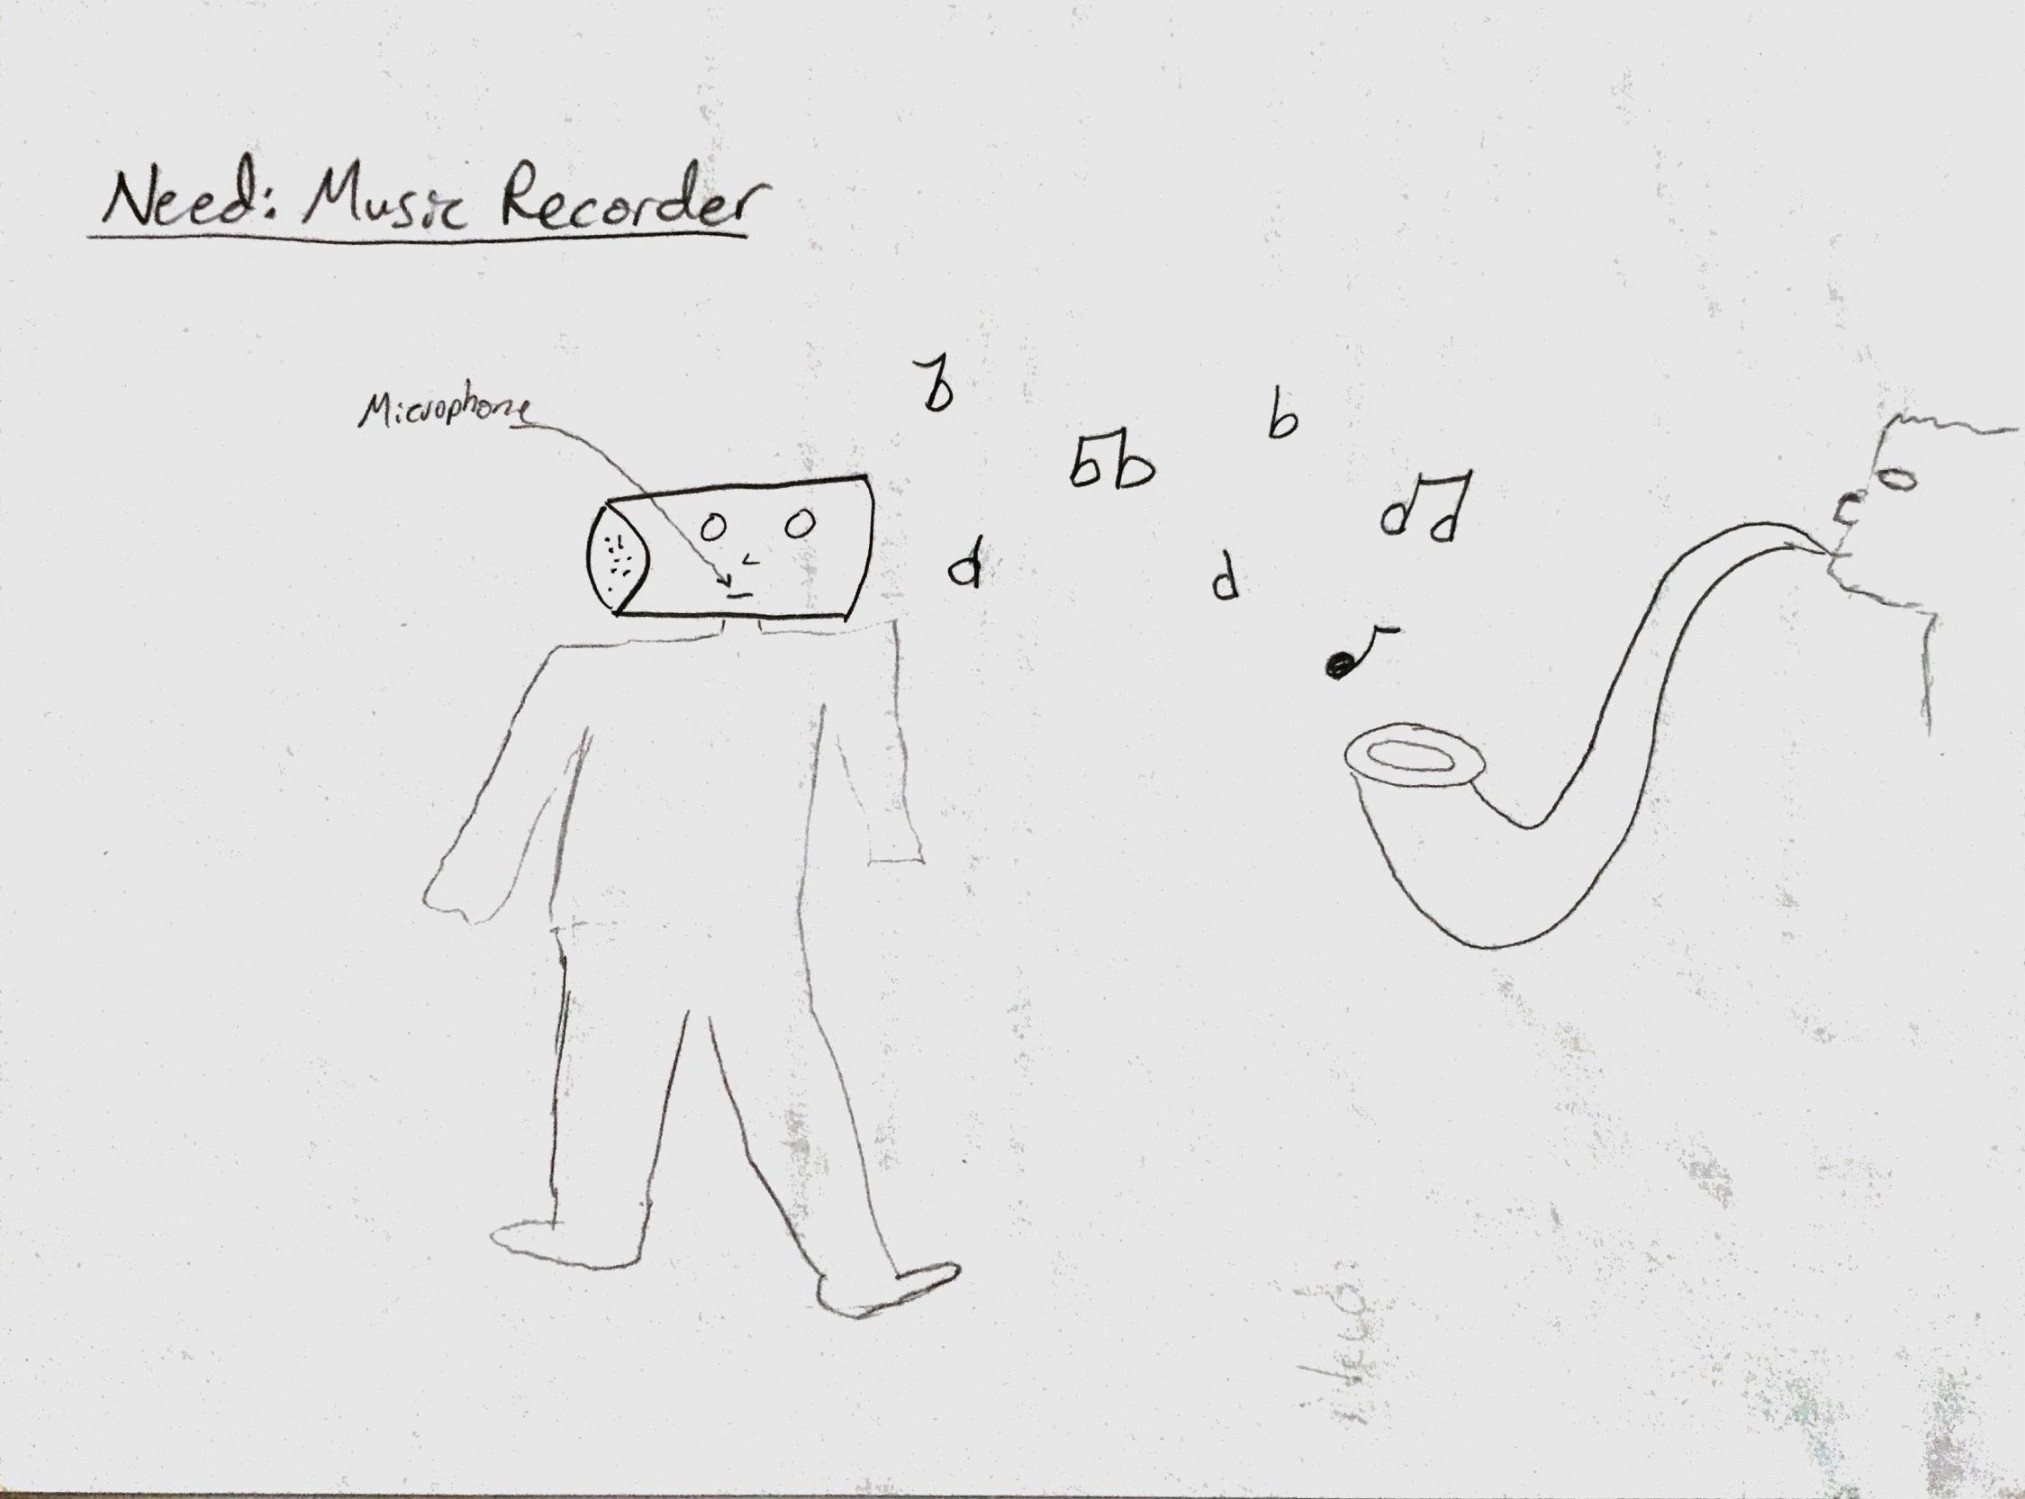 Need: Music Recorder
Microphone